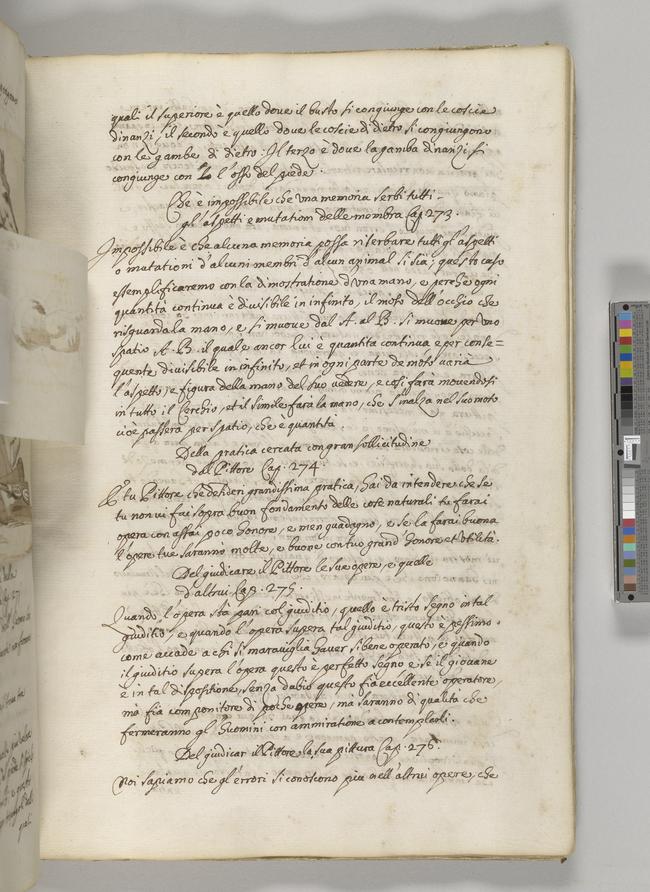 quali il superiore è quello dove il busto si congiunge con le coscie
dinanzi, il secondo è quello dove le coscie di dietro si congiungono
con le gambe di dietro: Il terzo è dove la gamba dinanzi si
congiunge con l'osso del piede.
Che è impossibile che una memoria serbi tutti
gl'aspetti e mutationi delle membra Cap 273.
Impossibile è che alcuna memoria possa riserbare tutti gl'aspetti
o mutationi d'alcuni membri d'alcun animal si sia; questo caso
essemplificaremo con la dimostratione d'una mano, e perche ogni
quantità continua è divisibile in infinito, il moto dell'occhio che
risguarda la mano, e si muove dal A. al B. si muove per uno
spatio A. B. il quale ancor lui è quantità continua e per conse=
quente divisibile in infinito, et in ogni parte de moto varia
l'aspetto, e figura della mano del suo vedere, e cosi farà movendosi
in tutto il Cerchio, et il simile fara la mano, che s'inalza nel suo moto
cioè passera per spatio, che è quantità.
Della pratica cercata con gran sollicitudine
dal Pittore Cap. 274.
E tu Pittore che desideri grandissima pratica, hai da intendere che se
tu non vi fai sopra buon fondamento delle cose naturali tu farai
opera con assai poco honore, e men guadagno, e se la farai buona
l'opere tue saranno molte, e buone con tuo grand'honore et utilità.
Del giudicare il Pittore le sue opere, e quelle
d'altrui Cap. 275.
Quando l'opera stà pari col giuditio, quello è tristo segno in tal
giuditio, e quando l'opera supera tal giuditio, questo è pessimo,
come accade a chi si maraviglia haver si bene operato, e quando
il giuditio supera l'opera questo è perfetto segno e se il giovane
è in tal dispositione, senza dubio questo fia eccellente operatore,
mà fia componitore di poche opere, mà saranno di qualità che
fermeranno gl'huomini con ammiratione a contemplarli.
Del giudicar il Pittore la sua pittura Cap. 276.
Noi sapiamo che gl'errori si conoscono piu nell'altrui opere, che